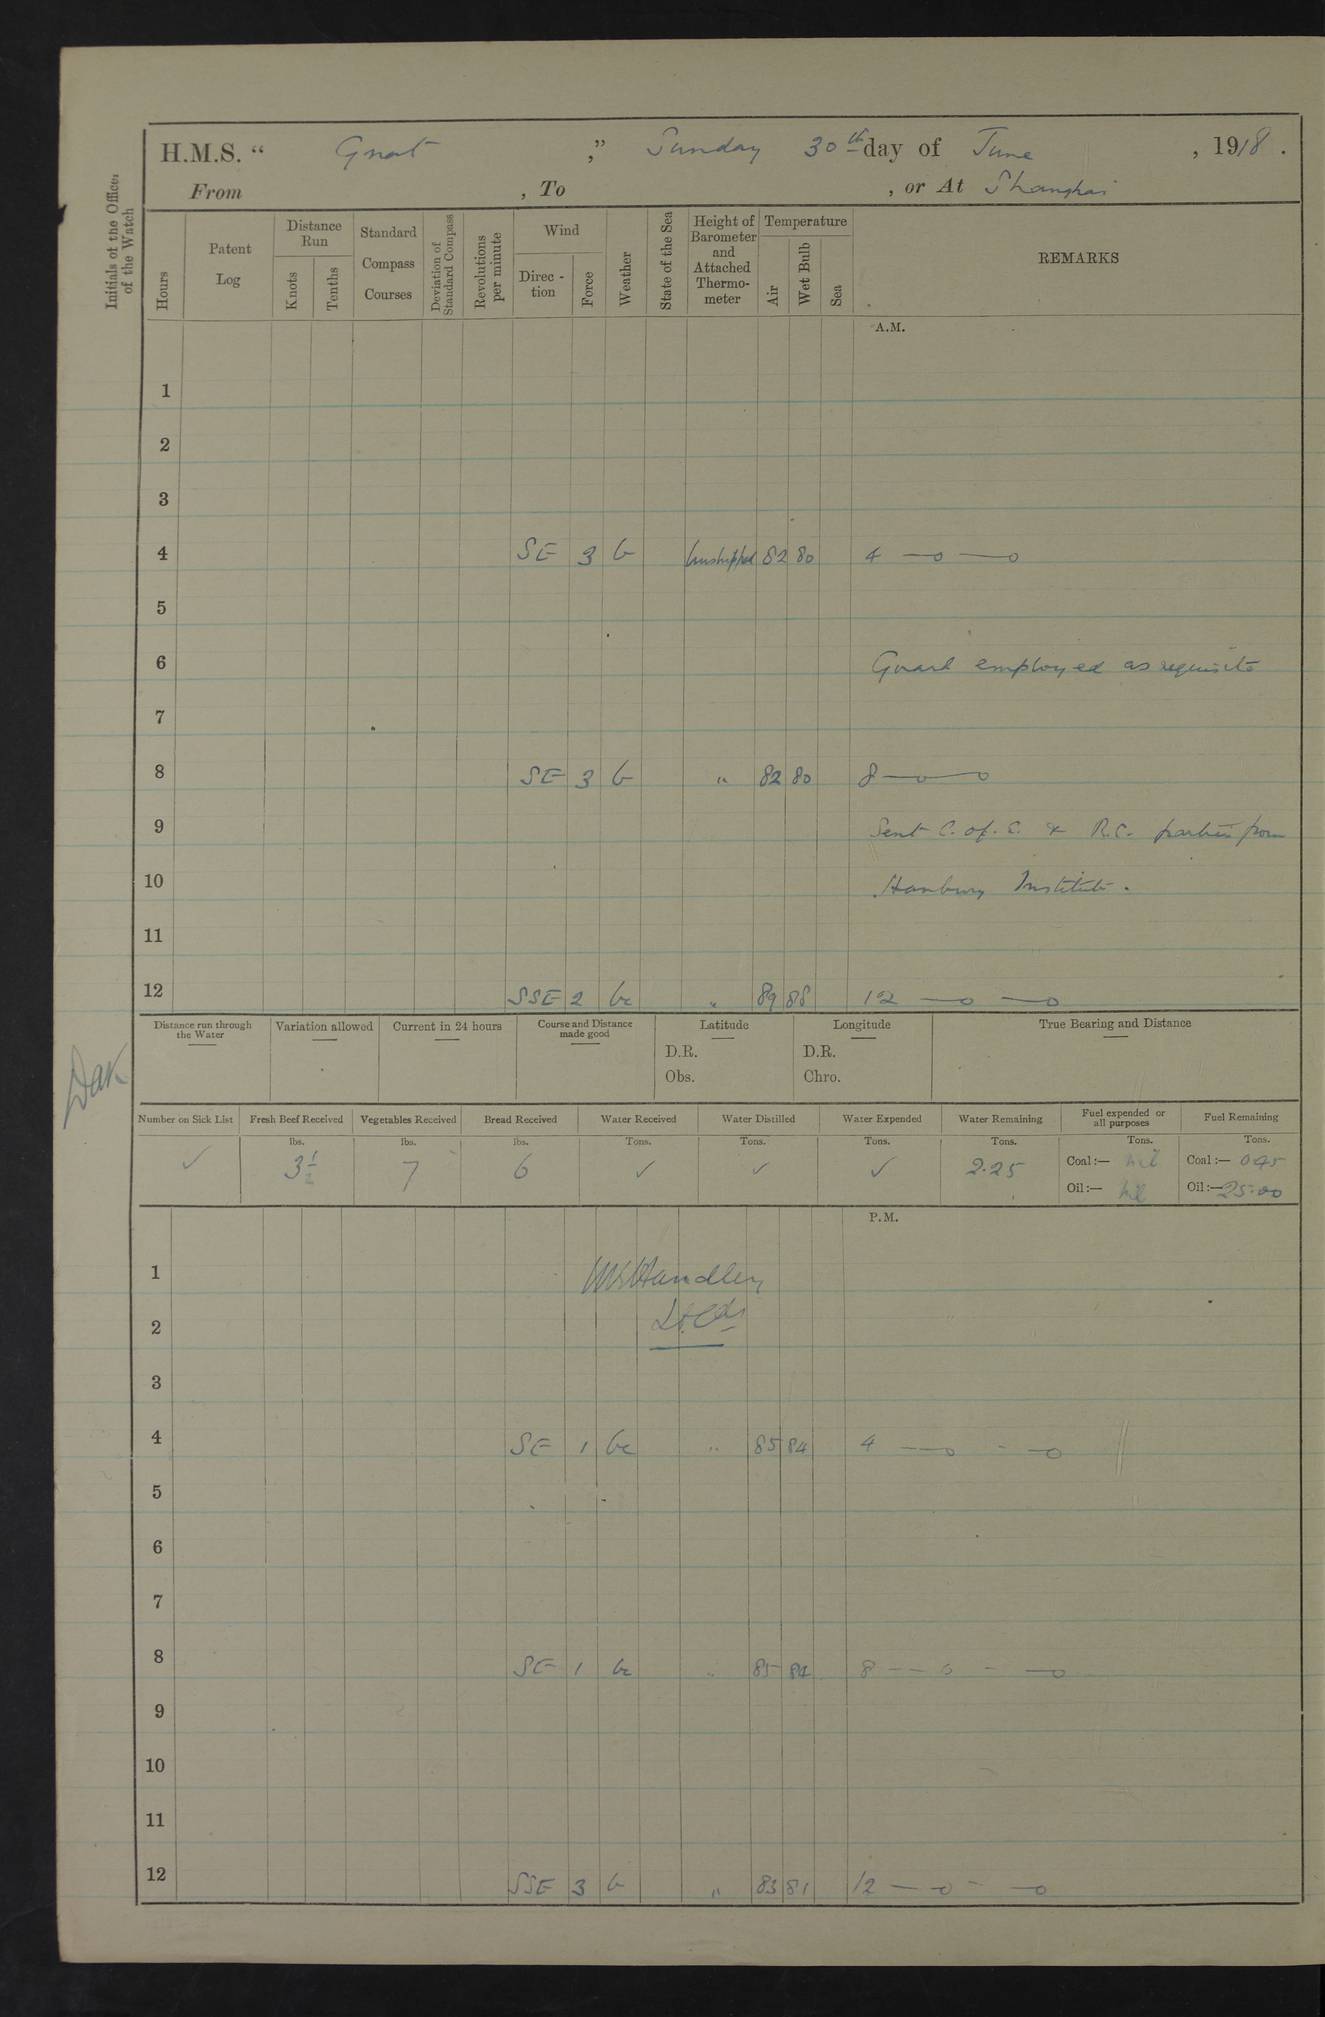 H.M.S. “ Gnat ,” Sunday 30th day of June , 1918 .
From , To , or At Shanghai
Initials of the Officer of the Watch
Hours
Patent Log
Distance Run
Knots
Tenths
Standard Compass Courses
Deviation of Standard Compass
Revolutions per minute
Wind
Direc - tion
Force
Weather
State of the Sea
Height of Barometer and Attached Thermo- meter
Temperature
Air
Wet Bulb
Sea
REMARKS
A.M.
1
2
3
4 SE 3 b Unshipped 82 80 4 —o —o
5
6 Guard employed as requisite
7
8 SE 3 b " 82 80 8 —o —o
9 Sent C. of. E. & R.C. parties from
10 Hanbury Institute.
11
12 SSE 2 bc " 89 88 12 —o —o
Distance run through the Water
Variation allowed
Current in 24 hours
Course and Distance made good
Latitude
D.R.
Obs.
Longitude
D.R.
Chro.
True Bearing and Distance
Number on Sick List Fresh Beef Received Vegetables Received Bread Received Water Received Water Distilled Water Expended Water Remaining Fuel expended or all purposes Fuel Remaining
lbs. lbs. lbs. Tons. Tons. Tons. Tons. Tons. Tons.
✓ 3½ 7 6 ✓ ✓ ✓ 2.25 Coal :— nil Coal :— 0.45
Oil :— nil Oil :— 25.00
P.M.
1 Handley
2
3
4 SE 1 bc " 85 84 4 —o - —o
5
6
7
8 SE 1 bc " 85 84 8 — — o - —o
9
10
11
12 SSE 3 b " 83 81 12 — o - —o